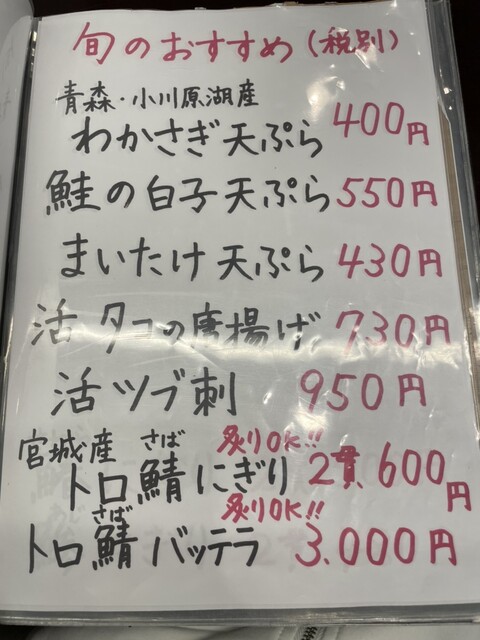 旬のおすすめ(税別)
青森・小川原湖産
わかさぎ天ぷら 400円
鮭の白子天ぷら 550円
まいたけ天ぷら 430円
活タコの唐揚げ 730円
活ツブ刺 950円
宮城産 さば 炙りOK!!
トロ鯖にぎり 2貫 600円
さば 炙りOK!!
トロ鯖バッテラ 3.000円